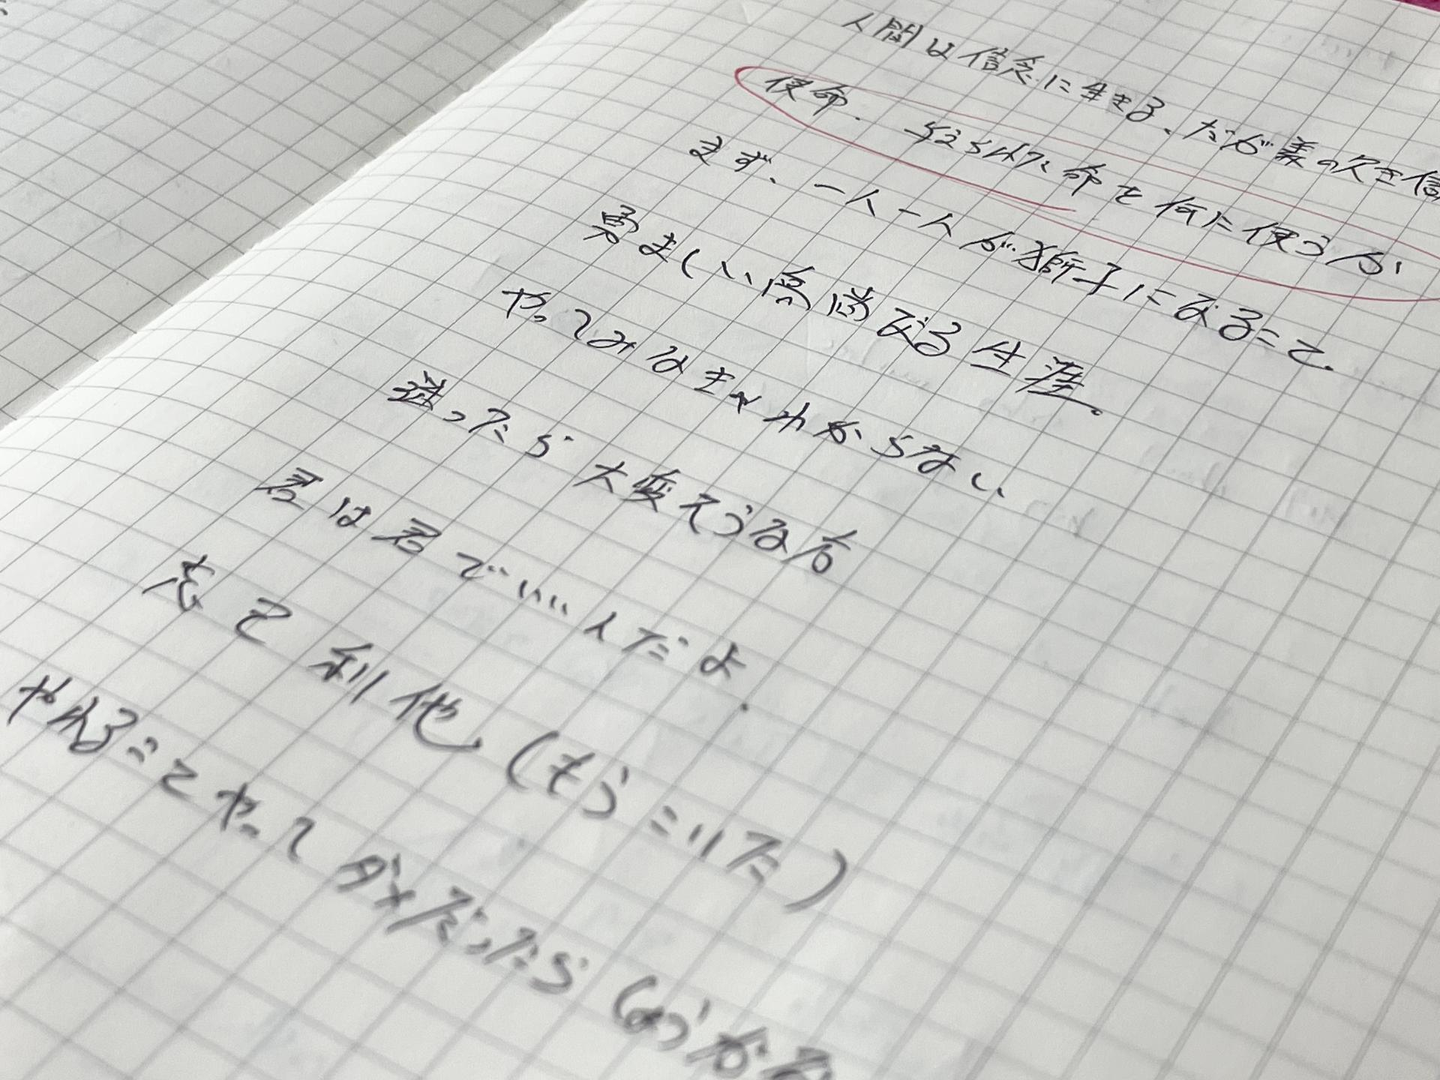 人間は信念に生きる、だが義の欠き信
使命. 与えられた命を何に使うか
まず、一人一人が獅子になること.
勇ましい高尚なる生涯。
やってみなきゃわからない
迷ったら大変そうな方
君は君でいいんだよ.
志と利他(もうこりた)
やれることやってダメだったらしょうがな